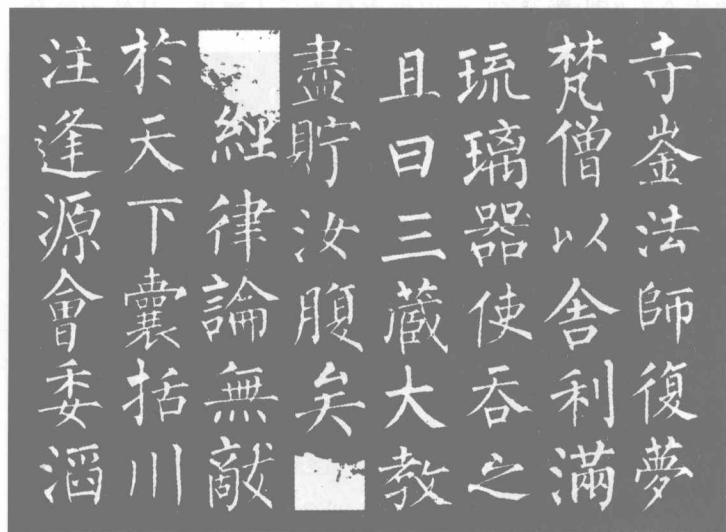 寺崟法師復夢
梵僧以舍利滿
琉璃器使吞之
且曰三藏大教
盡貯汝腹矣
經律論無敵
於天下囊括川
注逢源會委滔